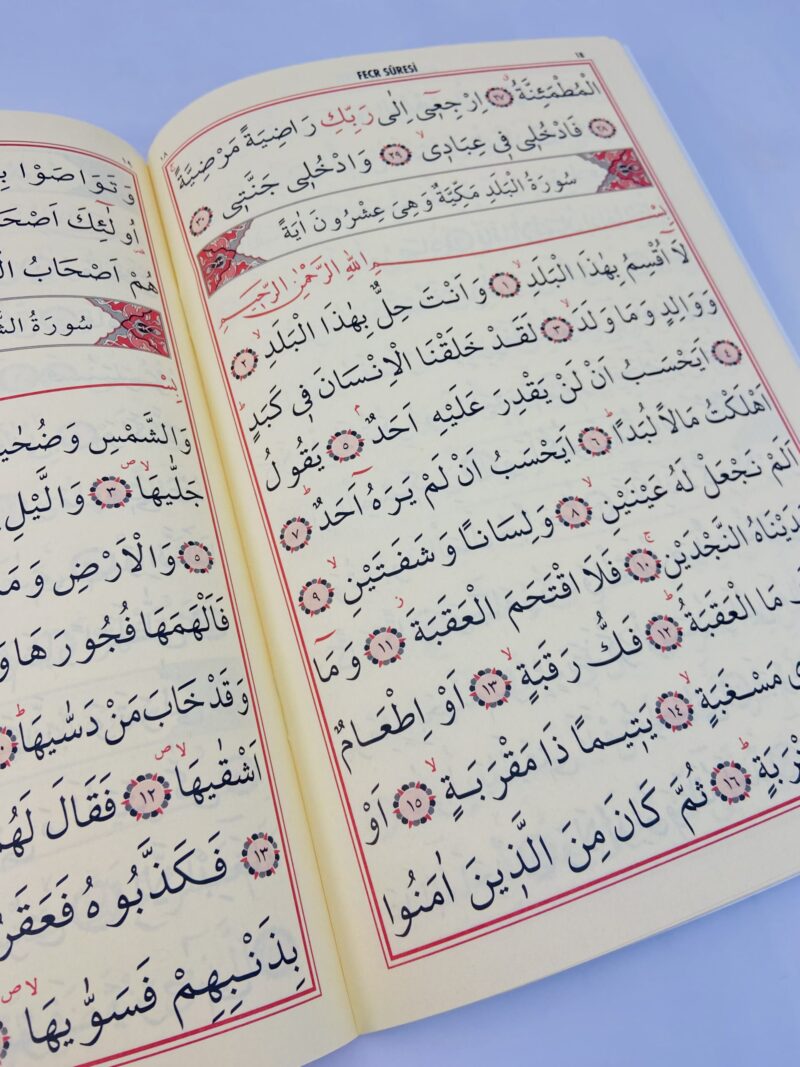 FECR SÛRESİ
الْمُطْمَئِنَّةُ ٢٧ اِرْجِع۪ٓي اِلٰى رَبِّكِ رَاضِيَةً مَرْضِيَّةً
٢٨ فَادْخُل۪ي ف۪ي عِبَاد۪ي ٢٩ وَادْخُل۪ي جَنَّت۪ي ٣٠
سُورَةُ الْبَلَدِ مَكِّيَّةٌ وَهِيَ عِشْرُونَ اٰيَةً
بِسْمِ اللّٰهِ الرَّحْمٰنِ الرَّح۪يمِ
لَٓا اُقْسِمُ بِهٰذَا الْبَلَدِ ١ وَاَنْتَ حِلٌّ بِهٰذَا الْبَلَدِ ٢
وَوَالِدٍ وَمَا وَلَدَ ٣ لَقَدْ خَلَقْنَا الْاِنْسَانَ ف۪ي كَبَدٍ
٤ اَيَحْسَبُ اَنْ لَنْ يَقْدِرَ عَلَيْهِ اَحَدٌ ٥ يَقُولُ
اَهْلَكْتُ مَالاً لُبَداً ٦ اَيَحْسَبُ اَنْ لَمْ يَرَهُٓ اَحَدٌ ٧
اَلَمْ نَجْعَلْ لَهُ عَيْنَيْنِ ٨ وَلِسَاناً وَشَفَتَيْنِ ٩
دَيْنَاهُ النَّجْدَيْنِ ١٠ فَلَا اقْتَحَمَ الْعَقَبَةَ ١١ وَمَٓا
مَا الْعَقَبَةُ ١٢ فَكُّ رَقَبَةٍ ١٣ اَوْ اِطْعَامٌ
ي مَسْغَبَةٍ ١٤ يَت۪يماً ذَا مَقْرَبَةٍ ١٥ اَوْ
رَبَةٍ ١٦ ثُمَّ كَانَ مِنَ الَّذ۪ينَ اٰمَنُوا
وَتَوَاصَوْا بِ
اُو۬لٰٓئِكَ اَصْحَا
هُمْ اَصْحَابُ الْ
سُورَةُ الشَّ
بِسْ
وَالشَّمْسِ وَضُحٰي
جَلّٰيهَا ٣ وَالَّيْلِ
٥ وَالْاَرْضِ وَمَا
فَاَلْهَمَهَا فُجُورَهَا وَ
وَقَدْ خَابَ مَنْ دَسّٰيهَا
اَشْقٰيهَا ١٢ فَقَالَ لَهُمْ
١٣ فَكَذَّبُوهُ فَعَقَرُ
بِذَنْبِهِمْ فَسَوّٰيهَا